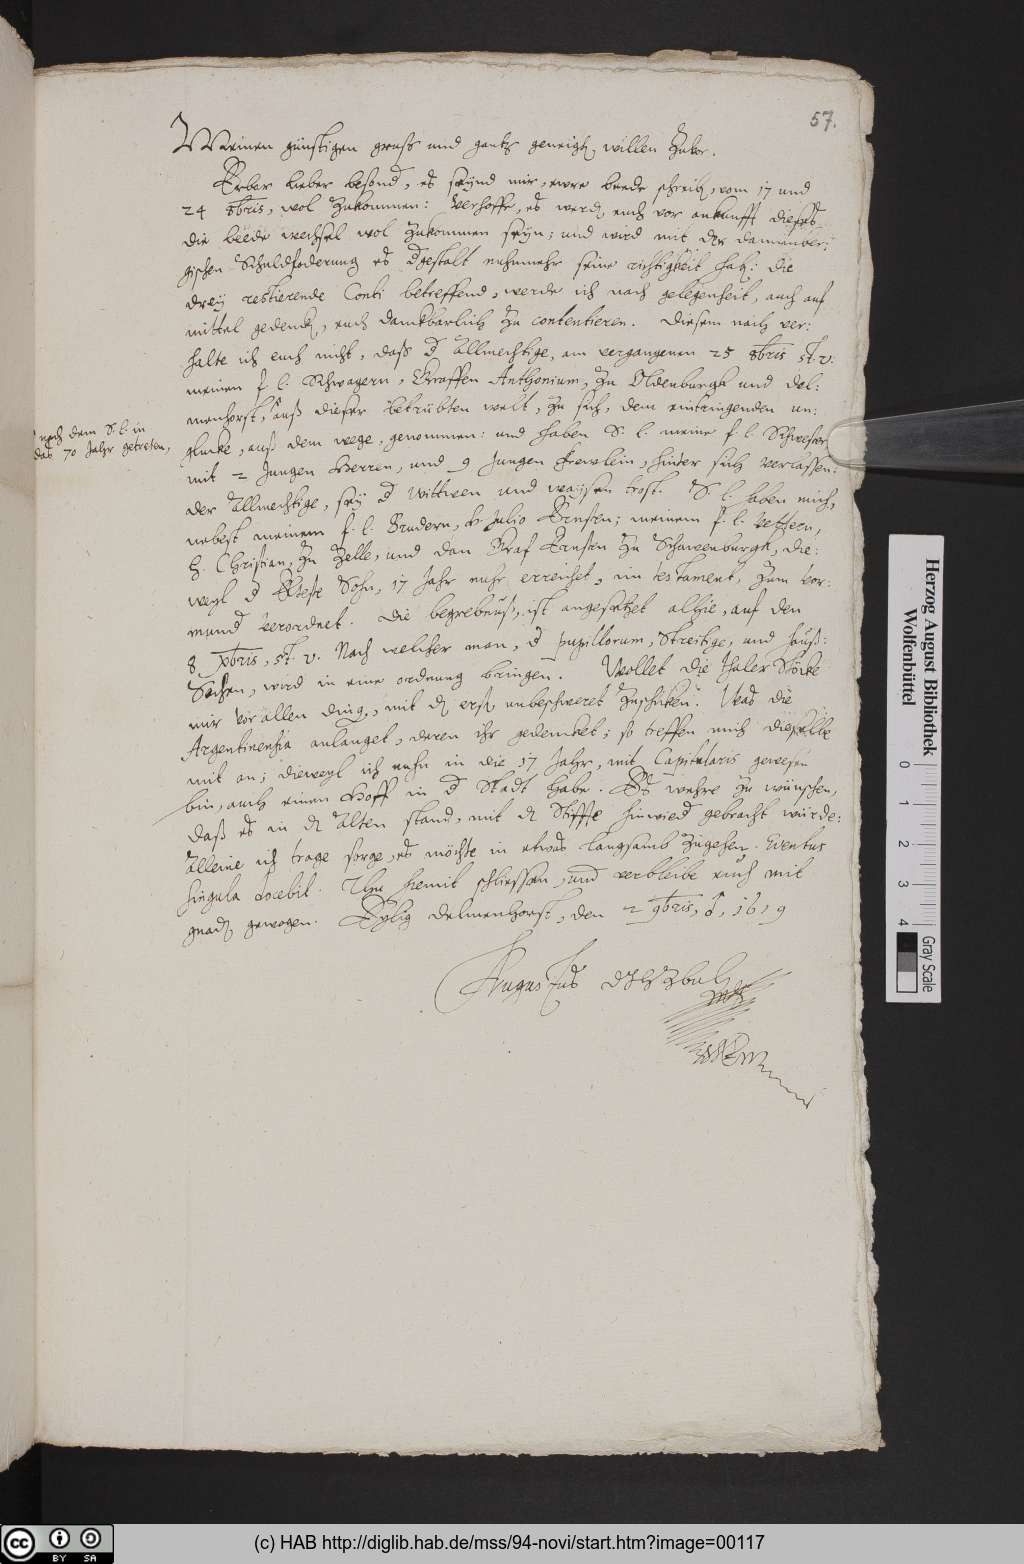 57.
Meinen günstigen gruß und gantz geneigt. willen Zuvor.
Erbar lieber besond., es seynd mir, ewre beede schreib., vom 17 und
24 8bris, wol Zukommen: Verhoffe, es werd. euch vor ankunfft dieses
die beede wechsel wol Zukommen seyn; und wird mit der
gischen Schuldfoderung es dgestalt nuhnmehr seine richtigkeit hab.: die
drey restierende Conti betreffend, werde ich nach gelegenheit, auch auf
mittel gedenck., euch danckbarlich zu contentieren. Diesem nach ver:
halte ich euch nicht, daß d Allmechtige, am vergangenen 25 8bris st. v.
meinen f. l. Schwagern, Graffen Anthonium, zu Oldenburgk und Del:
menhorst, auß dieser betrübten welt, zu sich, dem eintringenden un:
nach dem S. l. in
das 70 Jahr getreten,
glucke, auß dem wege, genommen: und haben S. l. meine f. l. Schwester
mit 2 Jungen Herren, und 9 Jungen Frewlein, hinder sich verlassen:
der Allmechtige, sey d Wittwen und waysen trost. S. l. haben mich,
nebest meinem f. l. Brudern, H. Julio Ernsten; meinem f. l. Vettern,
H. Christian, zu Zelle, und dan Graf Ernsten zu Schawenburgk, die:
weyl d Elteste Sohn, 17 Jahr nuhr erreichet, im testament, zum vor:
mund verordnet. Die begrebnuß, ist angesetzet alhie, auf den
8 xbris, st. v. Nach welcher man, d pupillorum, Streitige, und hauß:
Sachen, wird in eine ordnung bringen. Wollet die thaler Stöcke
mir vor allen ding., mit d. erst. unbeschweret Zuschicken. Was die
Argentinensia anlanget, deren ihr gedencket; so treffen mich dieselbe
mit an; dieweyl ich nuhn in die 17 Jahr, mit Capitularis gewesen
bin, auch einen Hoff in d Stadt habe. Es wehre zu wünschen,
daß es in d. Alten stand, mit d. Stiffte hinwied gebracht würde:
Alleine ich trage sorge, es möchte in etwas langsamb zugehen. Eventus
singula docebit. Thue hiemit schliessen, und verbleibe euch mit
gnad. gewogen. Eylig Delmenhorst, den 2 9bris, 1619
Augustus
Herzog August Bibliothek
Wolfenbüttel
0 1 2 3 4
Gray Scale
cc BY SA
(c) HAB http://diglib.hab.de/mss/94-novi/start.htm?image=00117